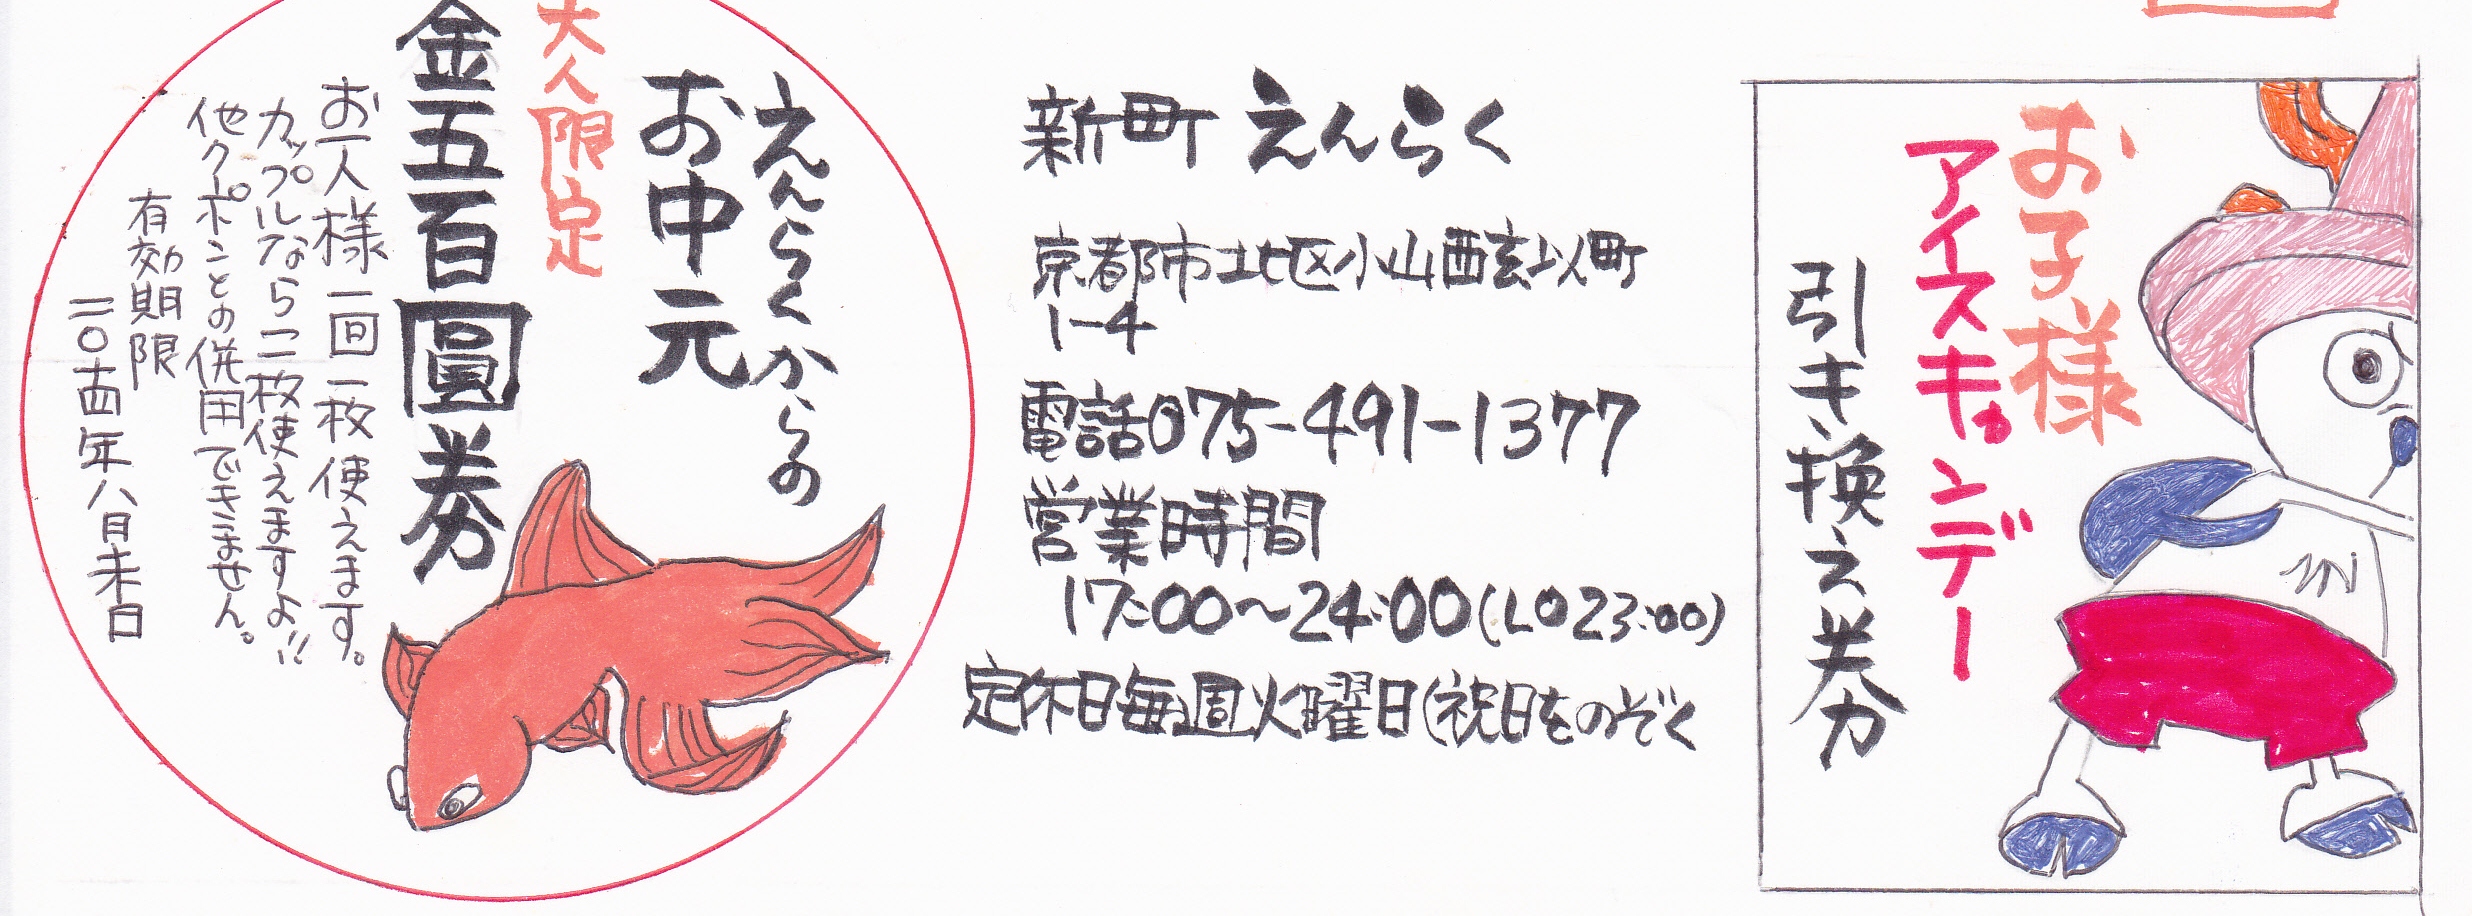 えんらくからの
お中元
大人限定
金五百圓券
お一人様一回一枚使えます。
カップルなら二枚使えますよ!!
他クーポンとの併用できません。
有効期限
二〇十四年八月末日
新町 えんらく
京都市北区小山西玄以町
1-4
電話075-491-1377
営業時間
17:00～24:00(LO23:00)
定休日毎週火曜日(祝日をのぞく
お子様
アイスキャンデー
引き換え券